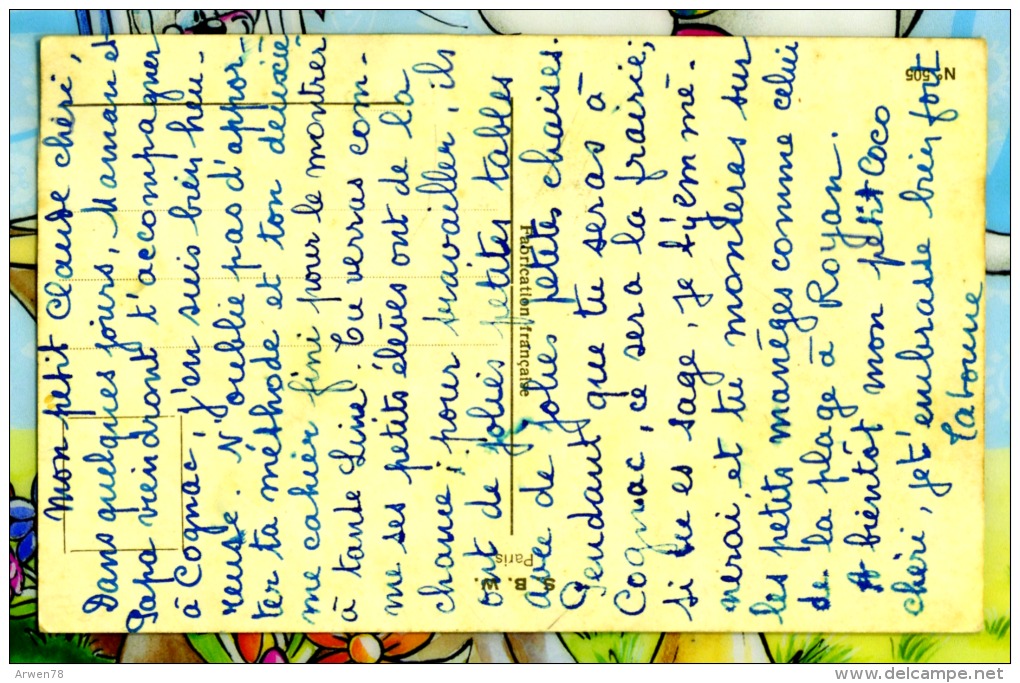 Mon petit Claude chéri,
Dans quelques jours, Maman et
Papa viendront t'accompagner
à Cognac ; j'en suis bien heu-
reuse. N'oublie pas d'appor-
ter ta méthode et ton deuxiè
me cahier fini pour le montrer
à tante Line. Tu verras com-
me ses petits élèves ont de la
chance ; pour travailler, ils
ont de jolies petites tables
avec de jolies petites chaises.
Pendant que tu seras à
Cognac, ce sera la frairie,
si tu es sage, je t'y emmè-
nerai, et tu monteras sur
les petits manèges comme celui
de la plage à Royan.
A bientôt mon petit coco
chéri, je t'embrasse bien fort
Tatoune
N° 505
Fabrication française
S. B. W.
Paris
Arwen78
www.delcampe.net